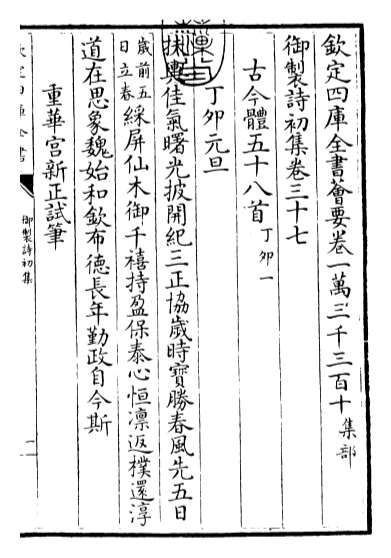 欽定四庫全書薈要卷一萬三千三百十 集部
御製詩初集卷三十七
古今體五十八首 丁卯一
丁卯元旦
扶輿佳氣曙光披開紀三正協歲時寶勝春風先五日
歲前五
日立春
綵屏仙木御千禧持盈保泰心恒凜返樸還淳
道在思象魏始和欽布德長年勤政自今斯
重華宮新正試筆
御製詩初集